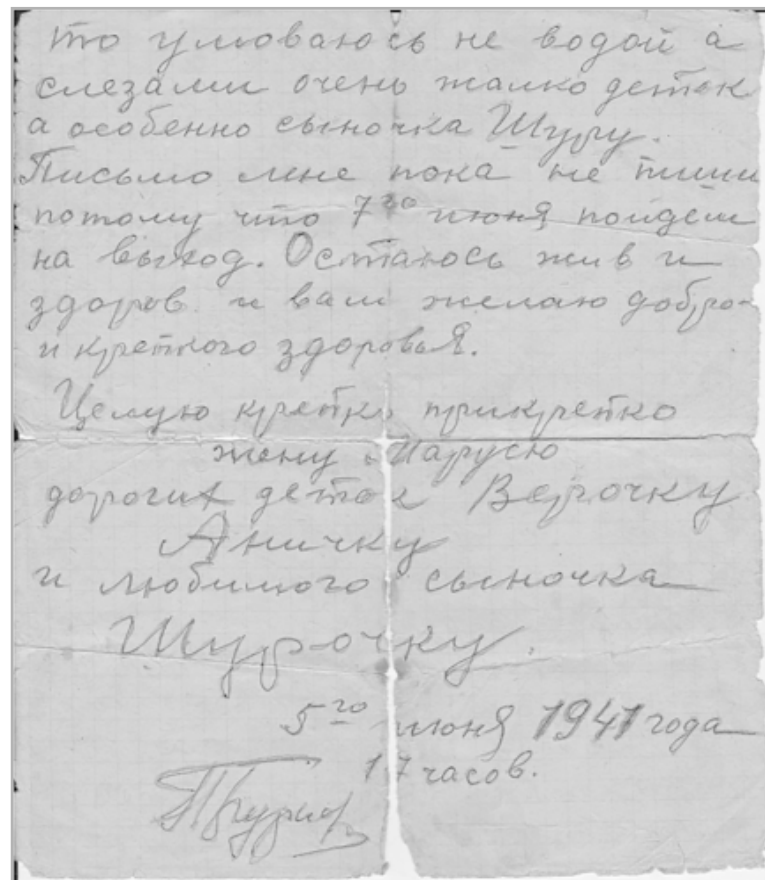 то умоваюсь не водой а
слезами очень жалко деток
а особенно сыночка Шуру.
Письмо мне пока не пиши
потому что 7го июня пойдем
на выход. Остаюсь жив и
здоров и вам желаю добро-
и крепкого здоровья.
Целую крепко прикрепко
жену Марусю
дорогих деток Верочку
Аничку
и любимого сыночка
Шурочку.
5го июня 1941 года
17 часов.